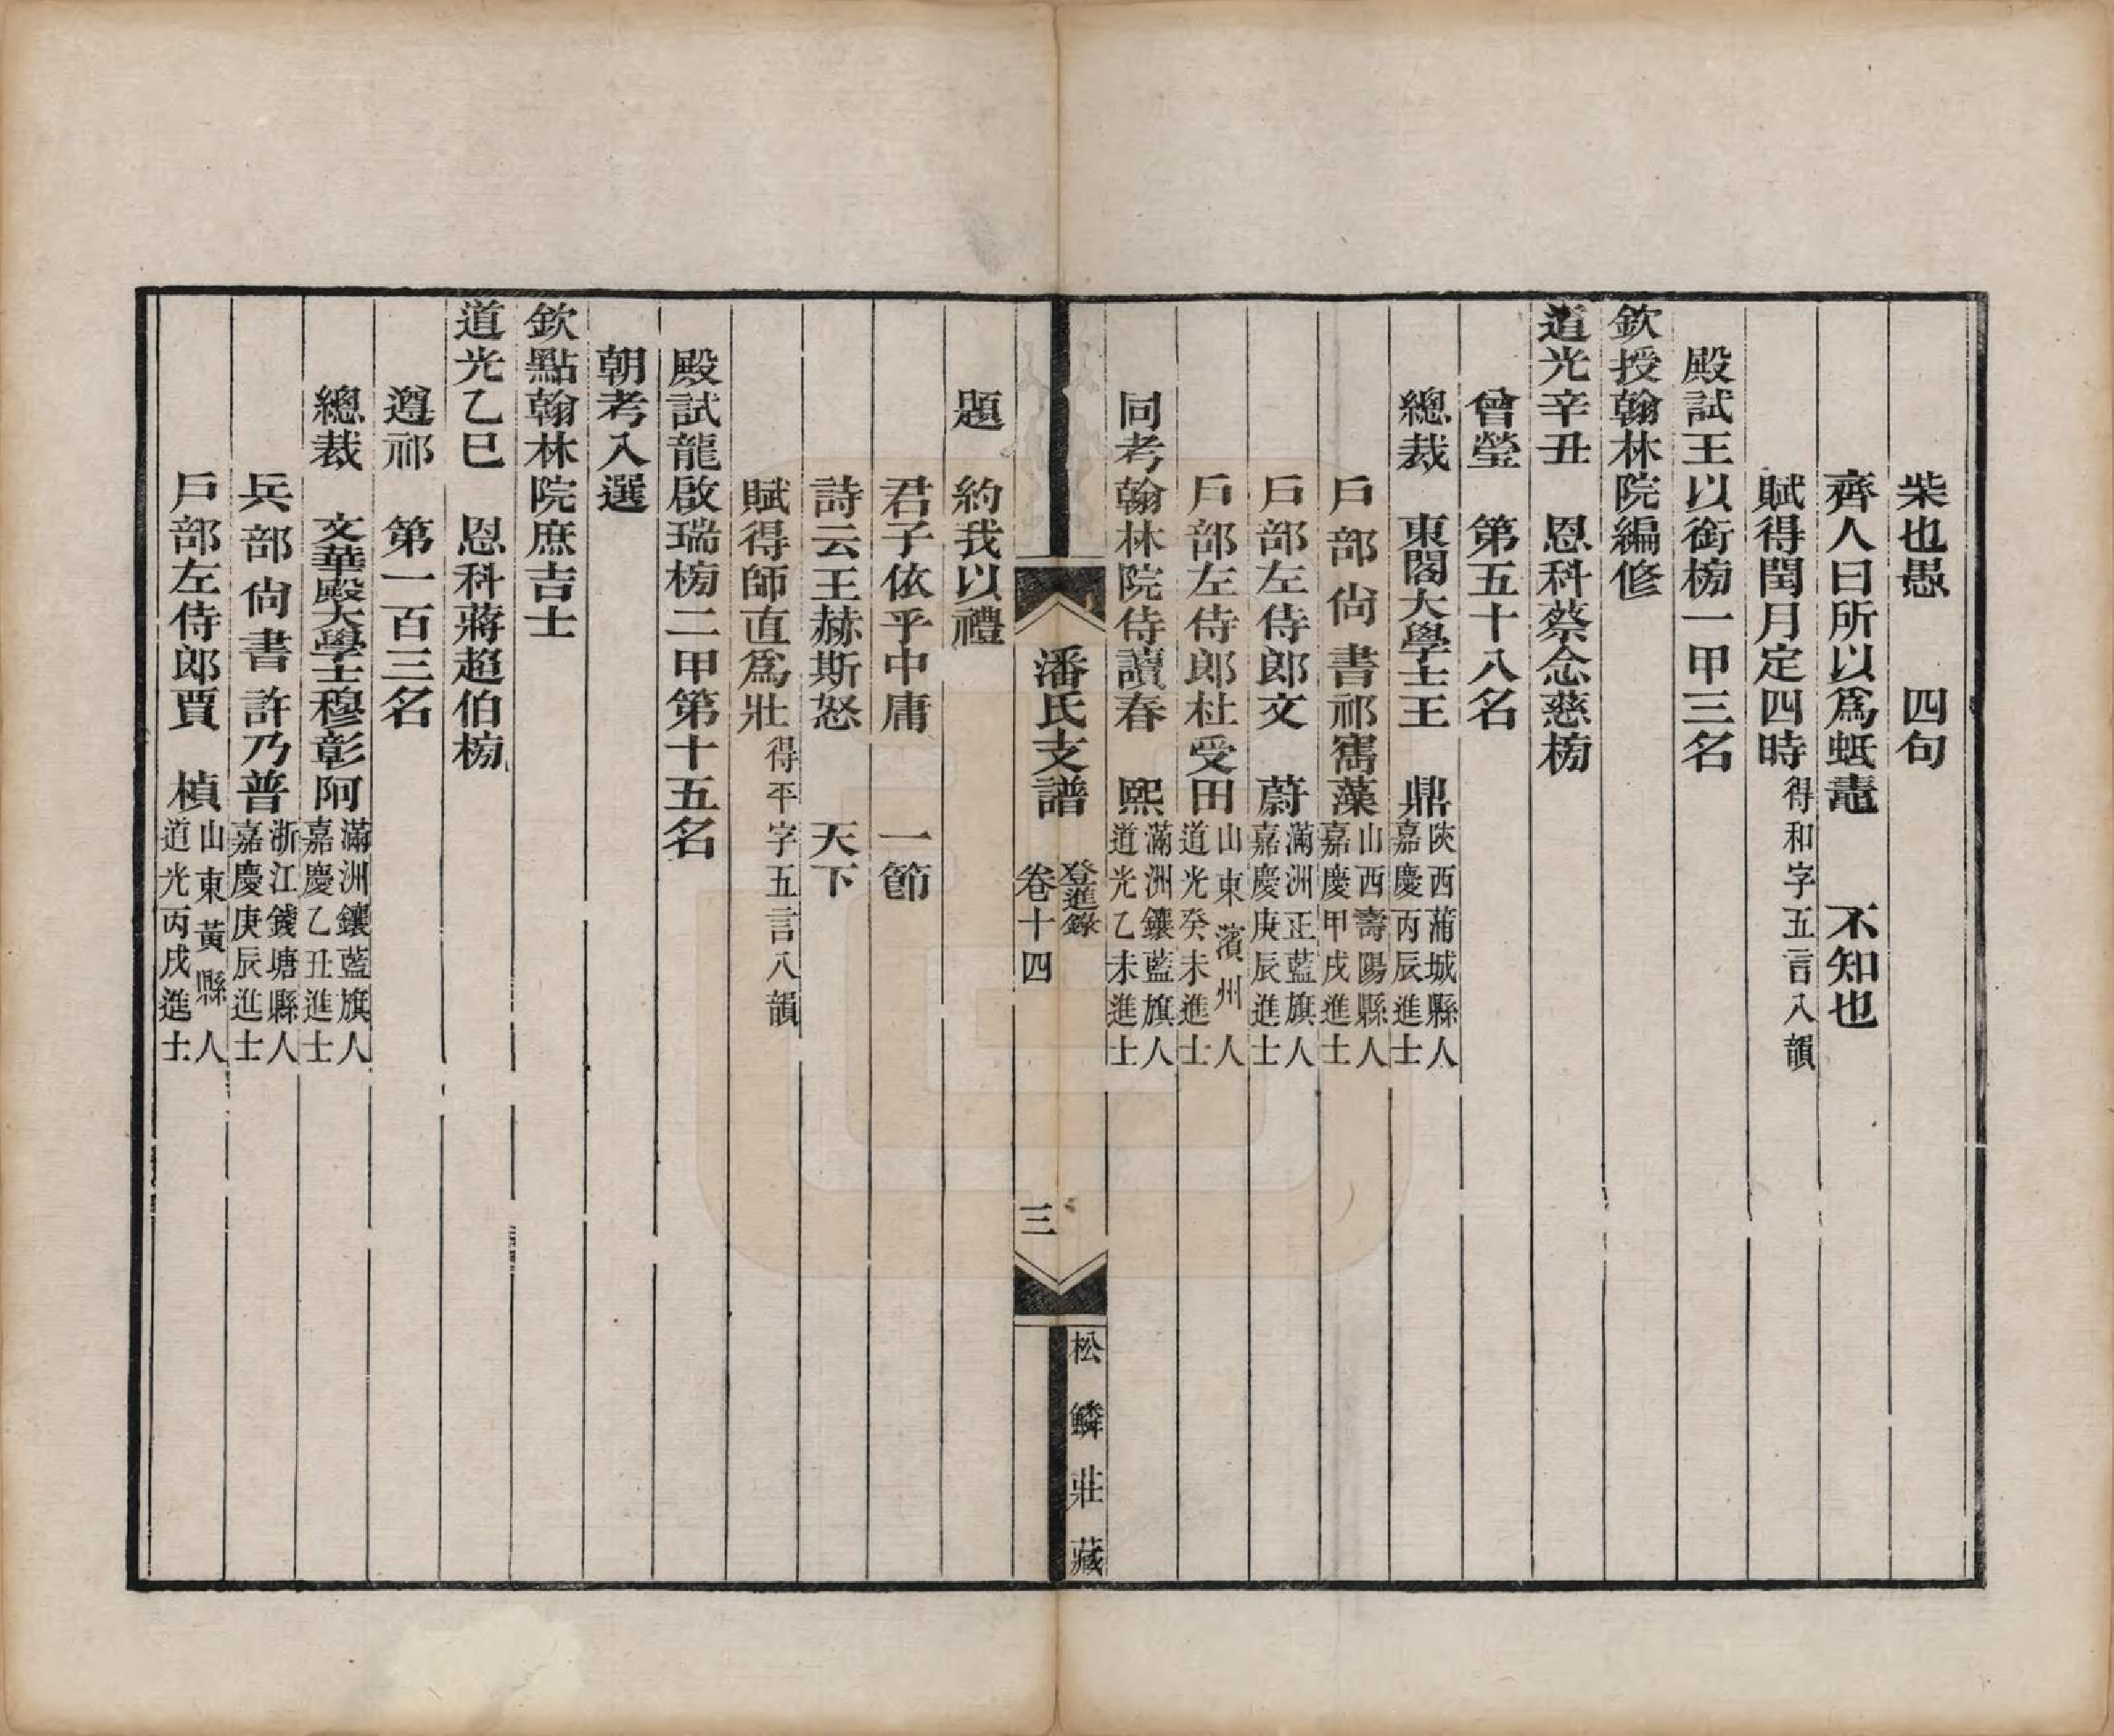 柴也愚　四句
齊人曰所以爲蚳鼃　不知也
賦得閏月定四時得和字五言八韻
殿試王以銜榜一甲三名
欽授翰林院編修
道光辛丑　恩科蔡念慈榜
曾瑩　第五十八名
總裁　東閣大學士王　鼎陝西蒲城縣人嘉慶丙辰進士
戶部尚書祁寯藻山西壽陽縣人嘉慶甲戌進士
戶部左侍郎文　蔚滿洲正藍旗人嘉慶庚辰進士
戶部左侍郎杜受田山東濱州人道光癸未進士
同考翰林院侍讀春　熙滿洲鑲藍旗人道光乙未進士
潘氏支譜　登進錄卷十四　三
松鱗莊藏
題　約我以禮
君子依乎中庸　一節
詩云王赫斯怒　天下
賦得師直爲壯得平字五言八韻
殿試龍啟瑞榜二甲第十五名
朝考入選
欽點翰林院庶吉士
道光乙巳　恩科蔣超伯榜
遵祁　第一百三名
總裁　文華殿大學士穆彰阿滿洲鑲藍旗人嘉慶乙丑進士
兵部尚書許乃普浙江錢塘縣人嘉慶庚辰進士
戶部左侍郎賈　楨山東黃縣人道光丙戌進士